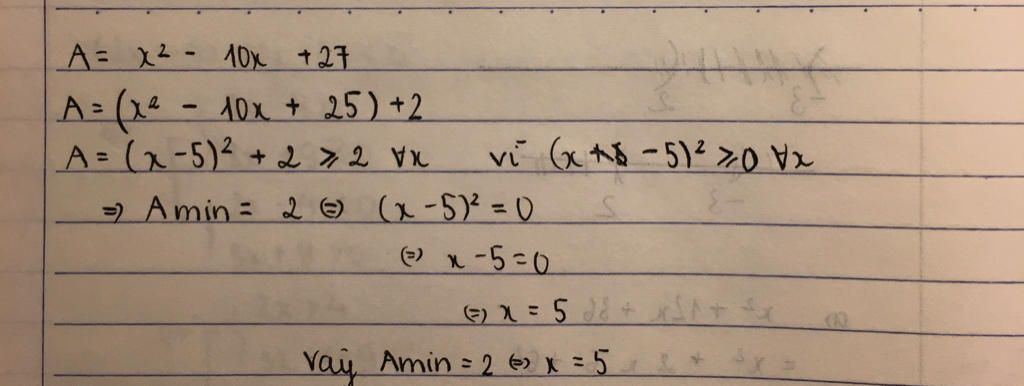 A = x² - 10x + 27
A = (x² - 10x + 25) + 2
A = (x - 5)² + 2 ⩾ 2 ∀x vì (x - 5)² ⩾ 0 ∀x
⇒ Amin = 2 ⇔ (x - 5)² = 0
⇔ x - 5 = 0
⇔ x = 5
Vậy Amin = 2 ⇔ x = 5